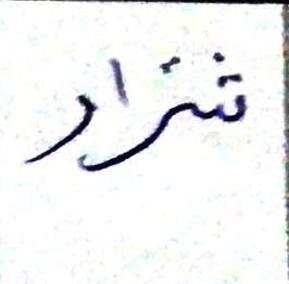 شرار